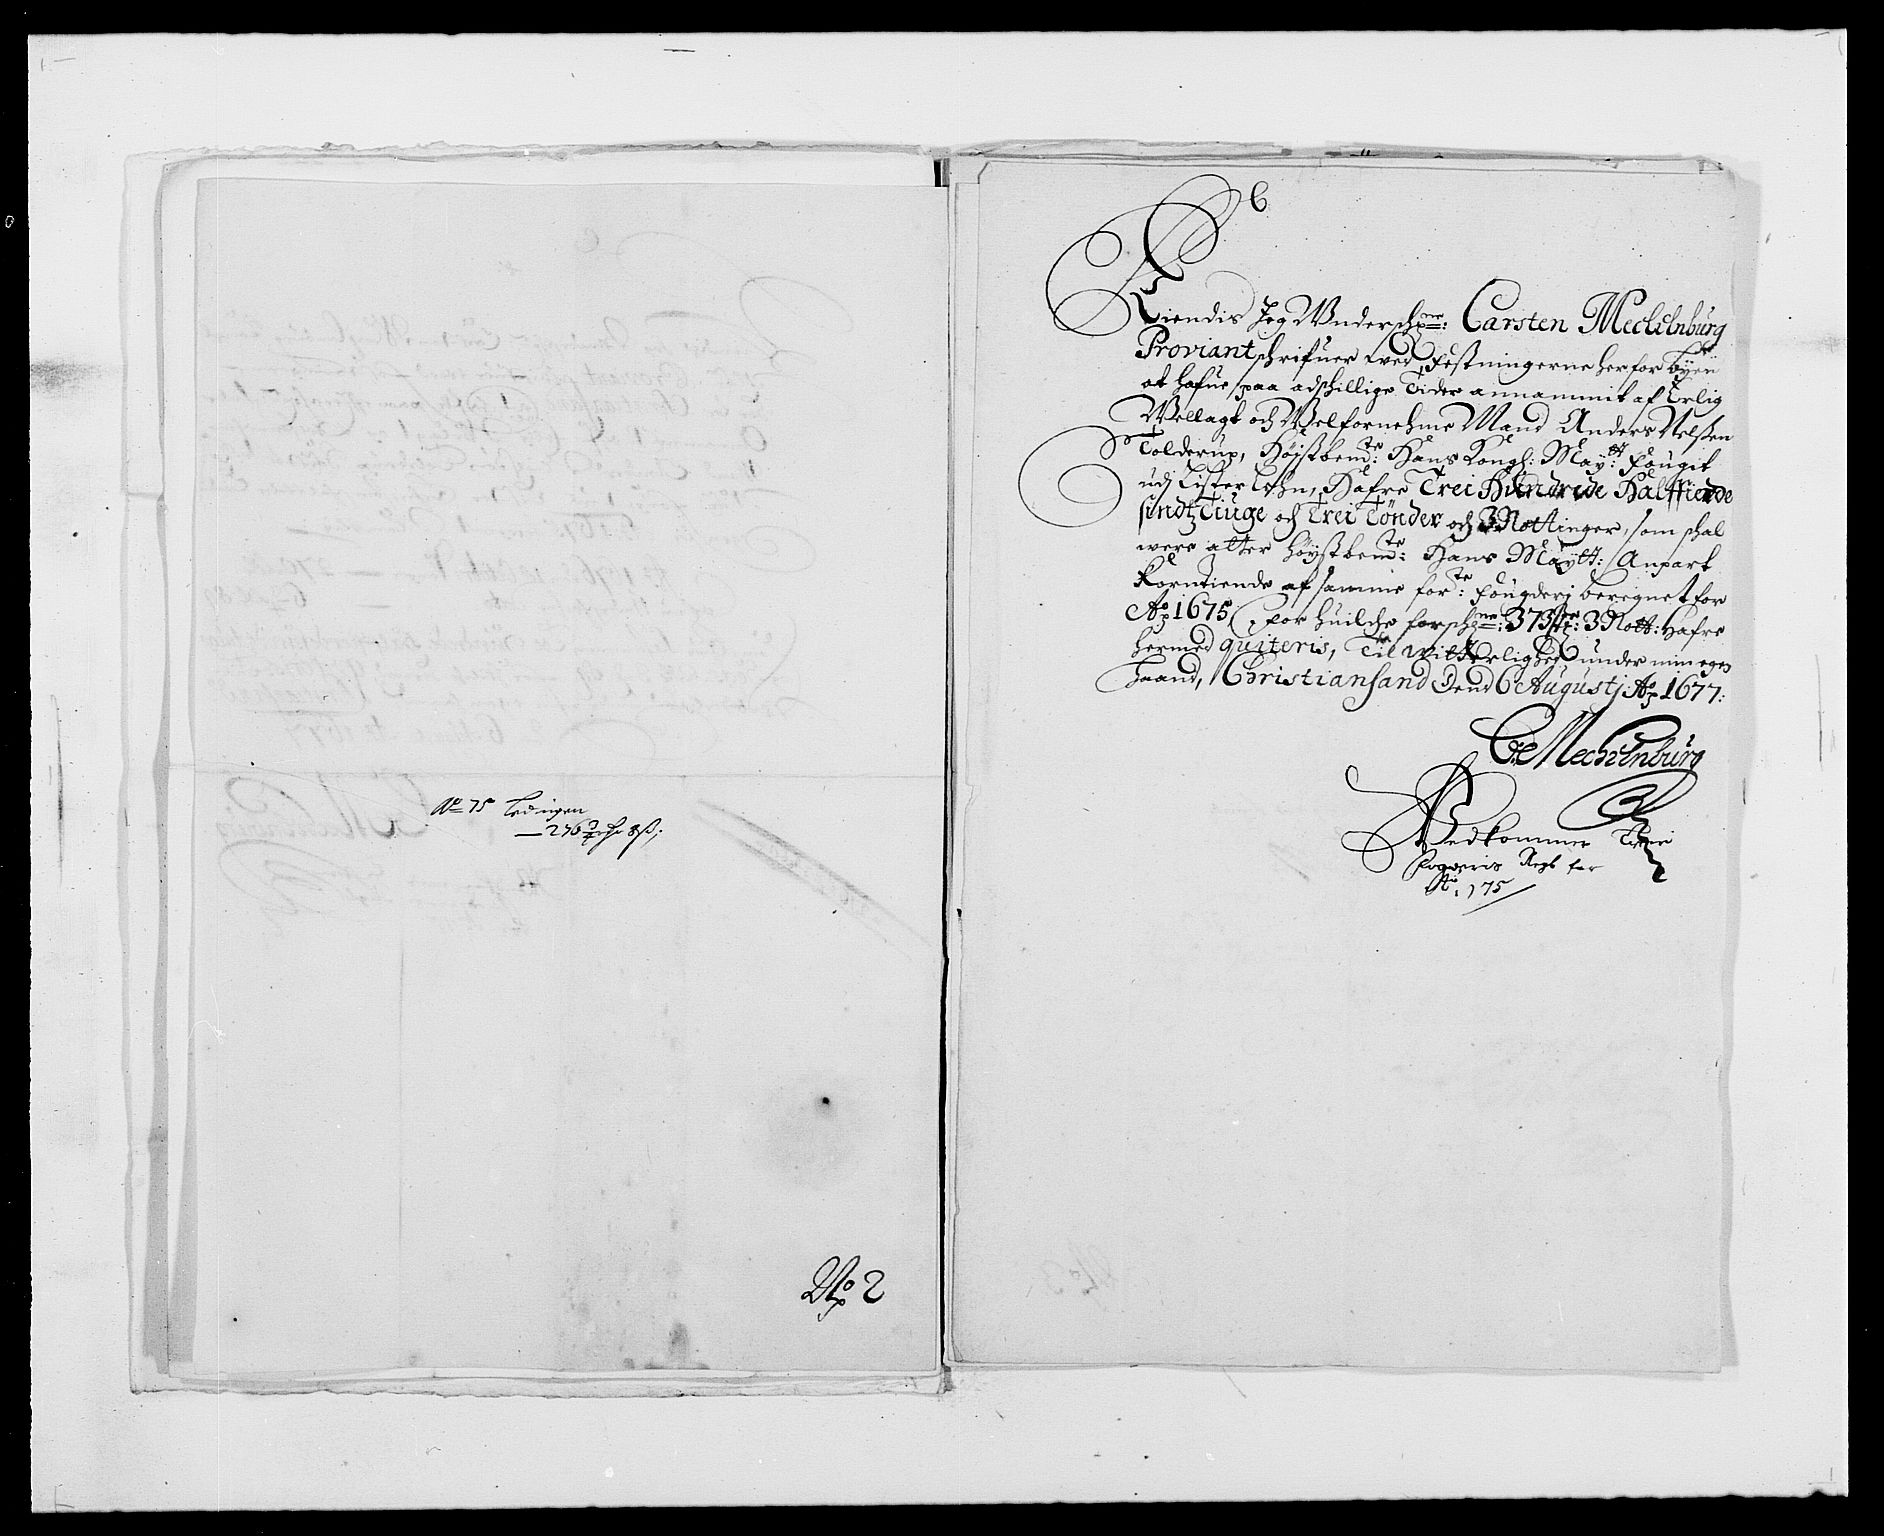 Ao 75
276
No 2
6
Kiendis Jeg Underschne: Carsten Mechelnburg
Proviantschrifuer wed Festningerne her for Byen
at hafue paa adschillige Tider annammit af Erlig
Wellagt och Welfornehme Mand Anders Nelßen
Tolderup, Höistbemte: Hans Kongl: Maytt: Fougit
udj Lister Lehn, Hafre Trei Hundrede Halffierde
sindtz Tiuge och Trei Tönder och 3 Nottinger, som schal
were atter höystbemte: Hans Maytt: Anpart
Korntiende af samme forte: Fougderj beregnet for
Ao 1675, for huilche forschne: 373 tr: 3 Nott: Hafre
hermed quiteris, Til Witterlighed under min egen
haand, Christiansand Dend 6 Augustj Ao 1677:
C Mechelnburg
Wedkommer
Fogderis Regb for
Ao: 175